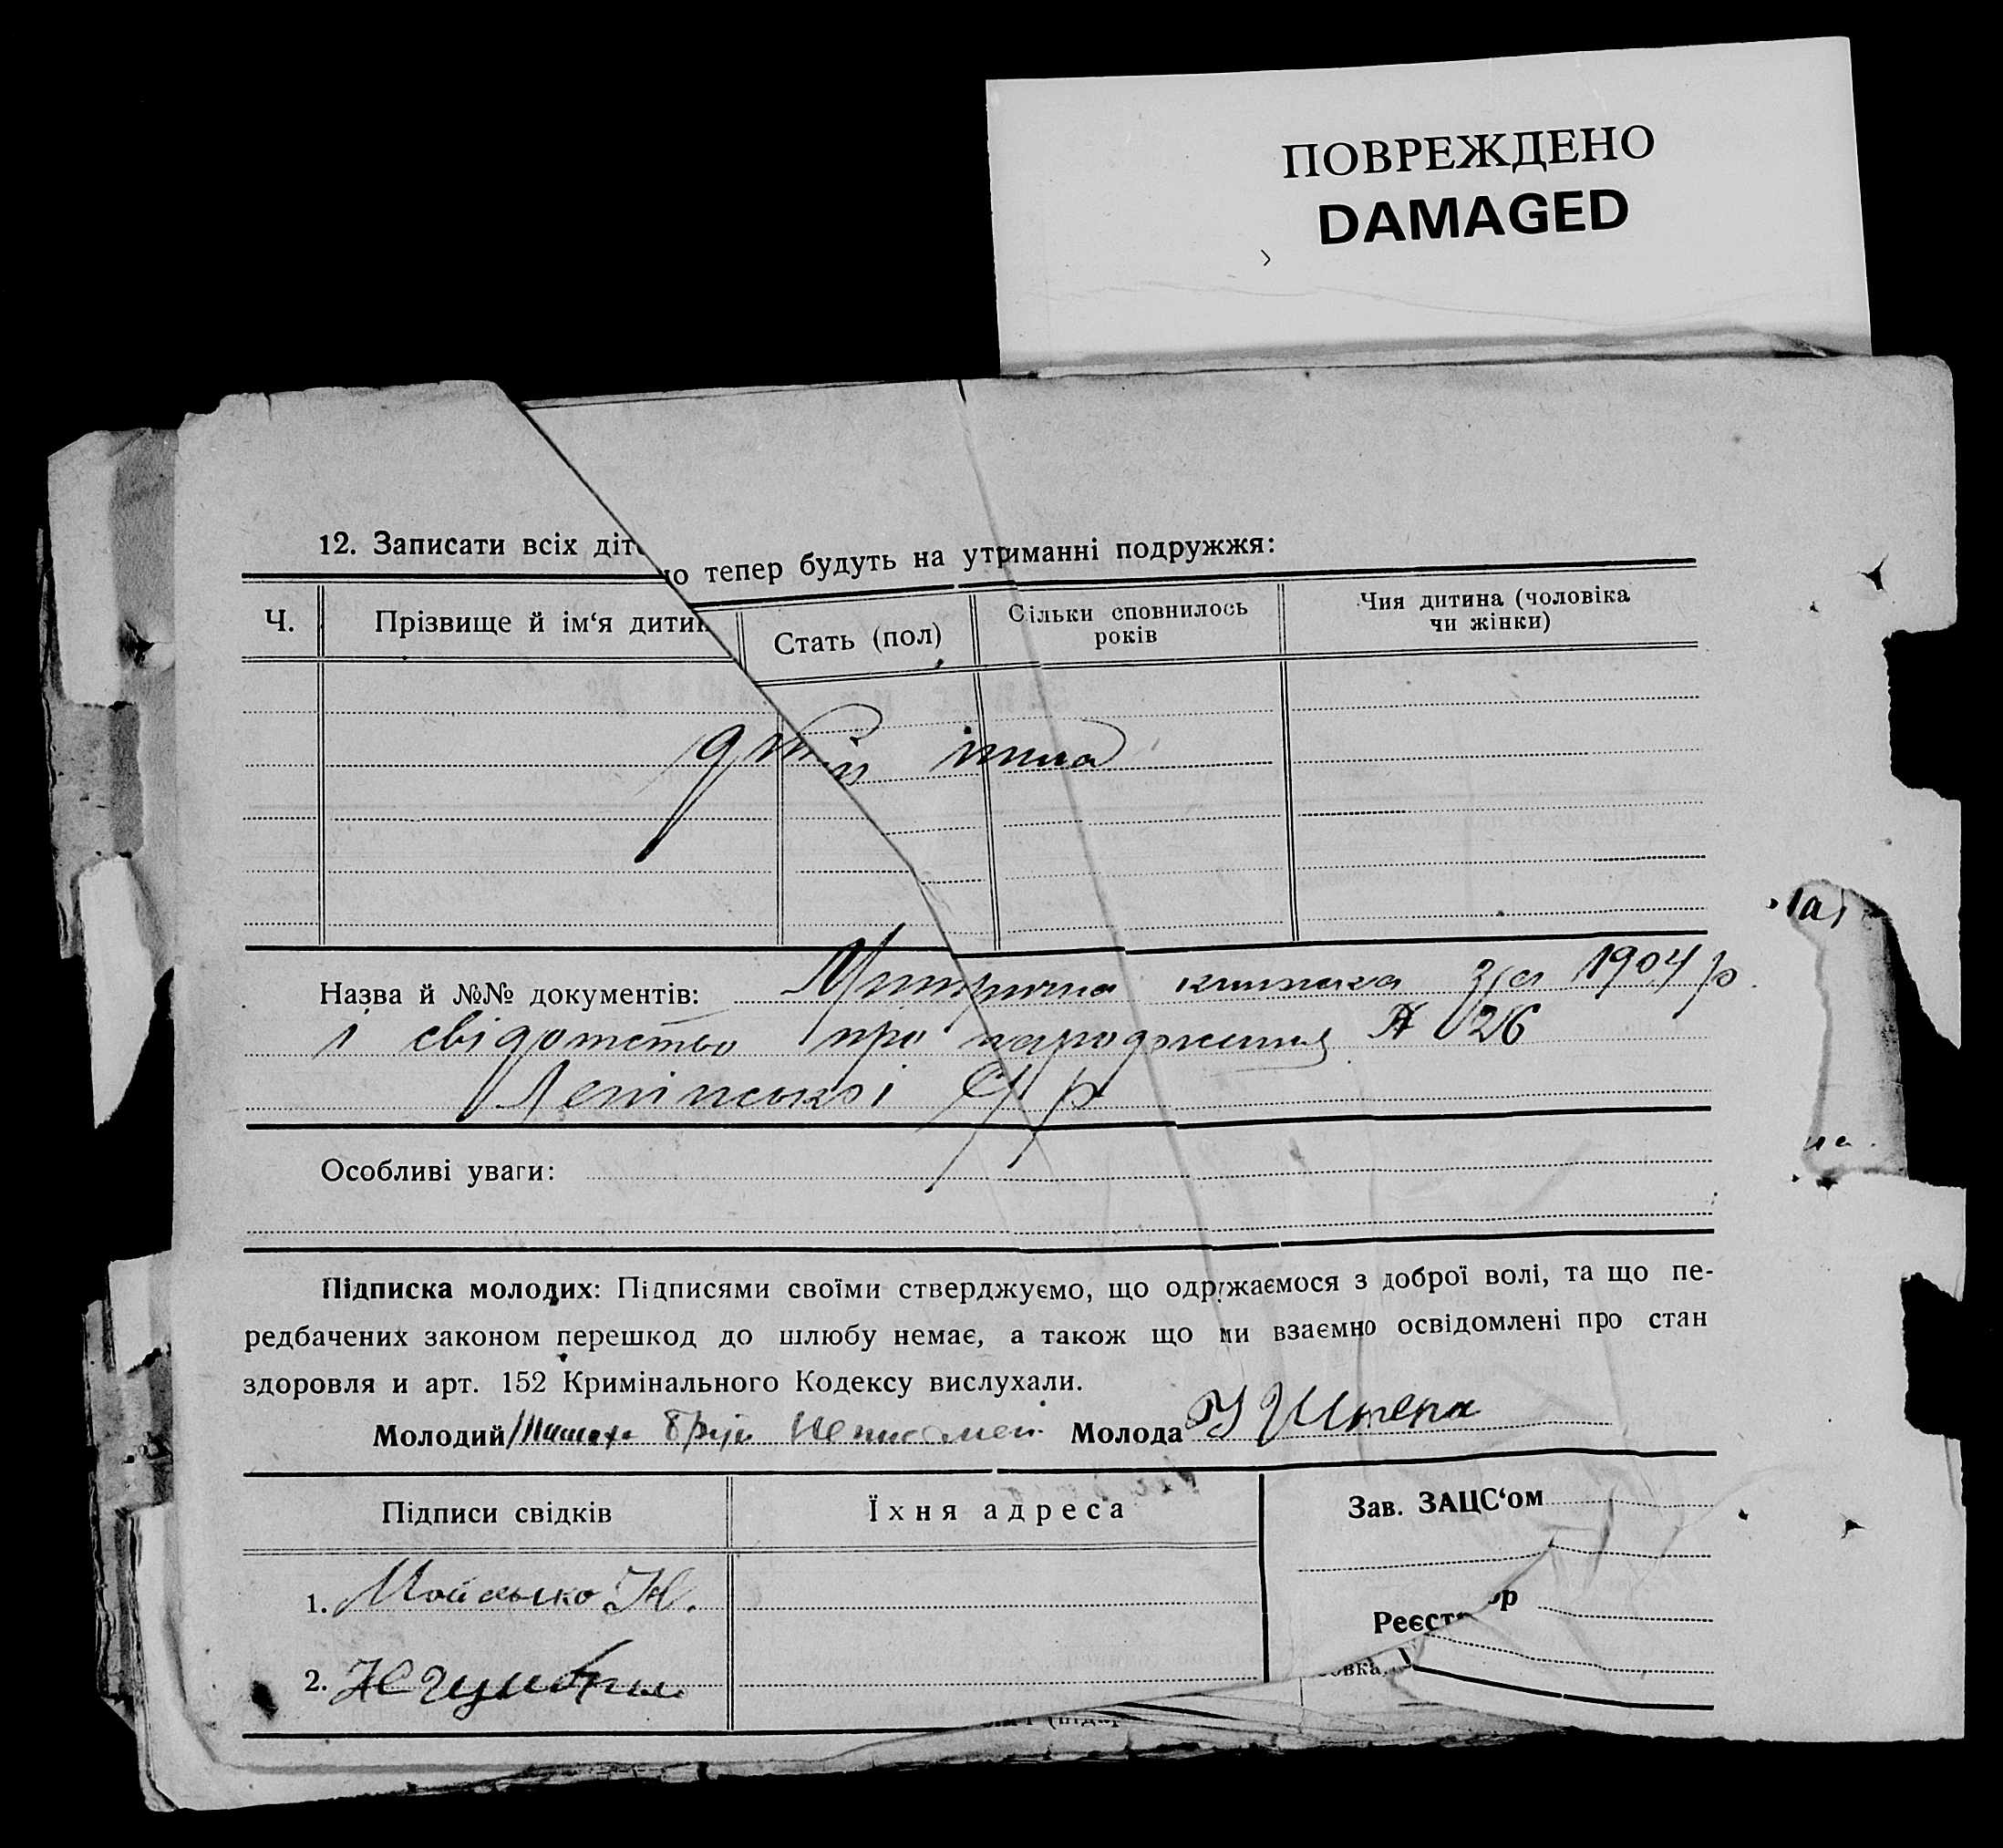 ПОВРЕЖДЕНО
DAMAGED
12. Записати всіх діт но тепер будуть на утриманні подружжя:
Ч.
Прізвище й ім‘я дитин
Стать (пол)
Сільки сповнилось
років
Чия дитина (чоловіка
чи жінки)
Назва й №№ документів: Митрична книжка за 1904 р.
і свідотство про народження № 26
Ленінської С/р
Особливі уваги:
Підписка молодих: Підписями своїми стверджуємо, що одружаємося з доброї волі, та що пе-
редбачених законом перешкод до шлюбу немає, а також що ми взаємно освідомлені про стан
здоровля и арт. 152 Кримінального Кодексу вислухали.
Молодий Молода
Підписи свідків
Їхня адреса
Зав. ЗАЦС‘ом
1.
Реєст ор
2.